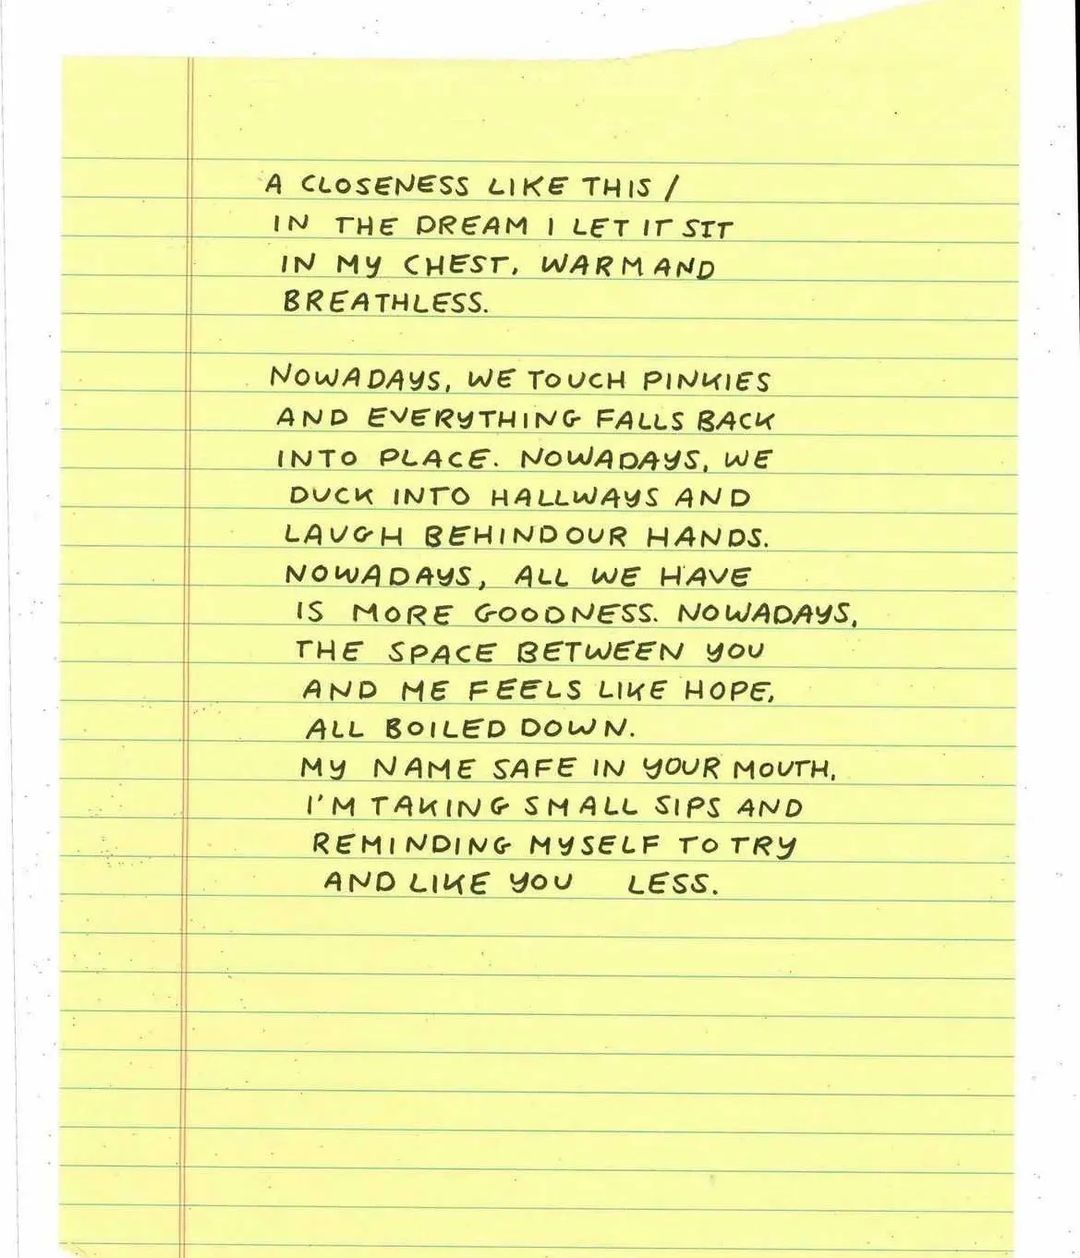 A CLOSENESS LIKE THIS /
IN THE DREAM I LET IT SIT
IN MY CHEST, WARM AND
BREATHLESS.
NOWADAYS, WE TOUCH PINKIES
AND EVERYTHING FALLS BACK
INTO PLACE. NOWADAYS, WE
DUCK INTO HALLWAYS AND
LAUGH BEHIND OUR HANDS.
NOWADAYS, ALL WE HAVE
IS MORE GOODNESS. NOWADAYS,
THE SPACE BETWEEN YOU
AND ME FEELS LIKE HOPE,
ALL BOILED DOWN.
MY NAME SAFE IN YOUR MOUTH,
I'M TAKING SMALL SIPS AND
REMINDING MYSELF TO TRY
AND LIKE YOU LESS.